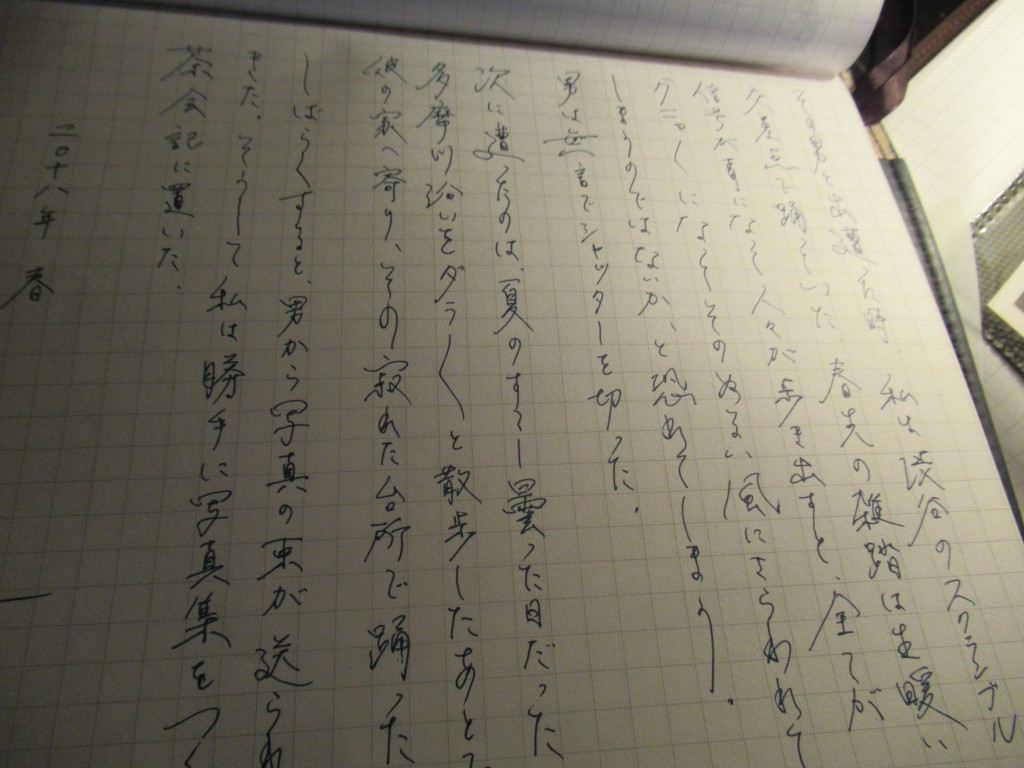 その男と出遭った時、私は渋谷のスクランブル
交差点で踊っていた 春先の雑踏は生暖い
信号が青になって人々が歩き出すと、全てが
グニャくにたなってそのぬるい風にさらわれて
しまうのではないか、と恐れてしまう。
男は無言でシャッターを切った。
次に遭ったのは、夏のすこし曇った日だった
多摩川沿いをダラ〱と散歩したあとで
彼の家へ寄り、その寂れた台所で踊った
しばらくすると、男から写真の束が送られ
きた。そうして 私は勝手に写真集をつく
茶会記に置いた.
二〇十八年 春